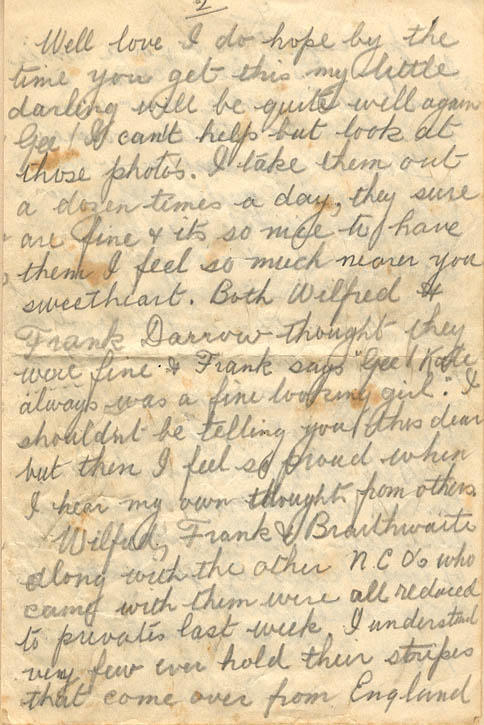 2
Well love I do hope by the
time you get this my little
darling will be quite well again
Gee! I can't help but look at
those photos. I take them out
a dozen times a day, they sure
are fine & its so nice to have
them I feel so much nearer you
sweetheart. Both Wilfred &
Frank Darrow thought they
were fine & Frank says "Gee! Kate
always was a fine looking girl." I
shouldn't be telling you this dear
but then I feel so proud when
I hear my own thoughts from others
Wilfred, Frank & Braithwaite
along with the other N.C.O's who
came with them were all reduced
to privates last week I understand
very few ever hold their stripes
that come over from England